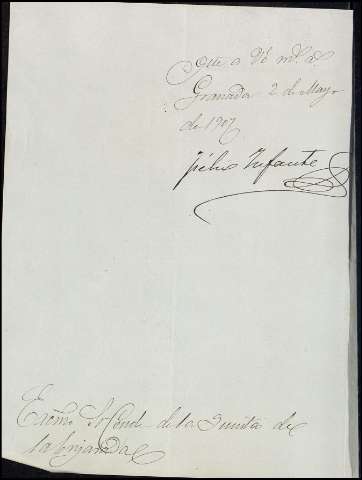 Dios gue a Vd ms. as.
Granada 2 de Mayo
de 1907
Infante
Excmo. Sr Conde de la Quinta de
la Enjarada